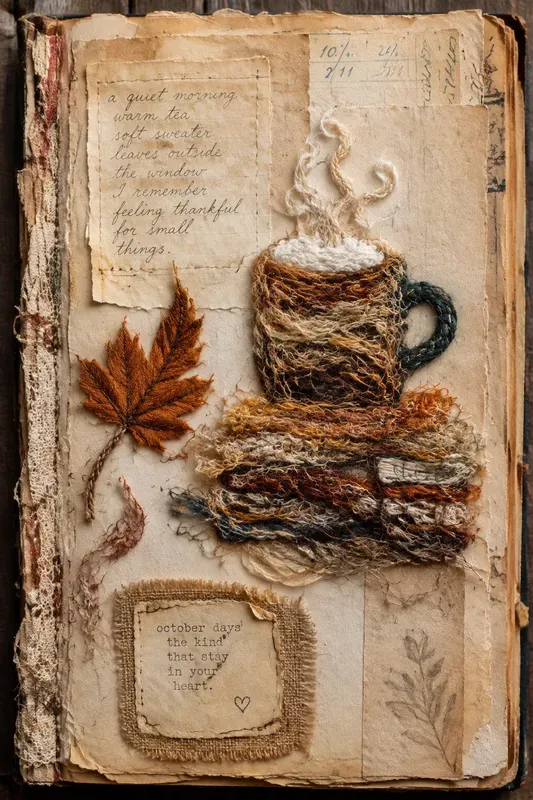 a quiet morning
warm tea
soft sweater
leaves outside
the window
I remember
feeling thankful
for small
things.
october days
the kind
that stay
in your
heart.